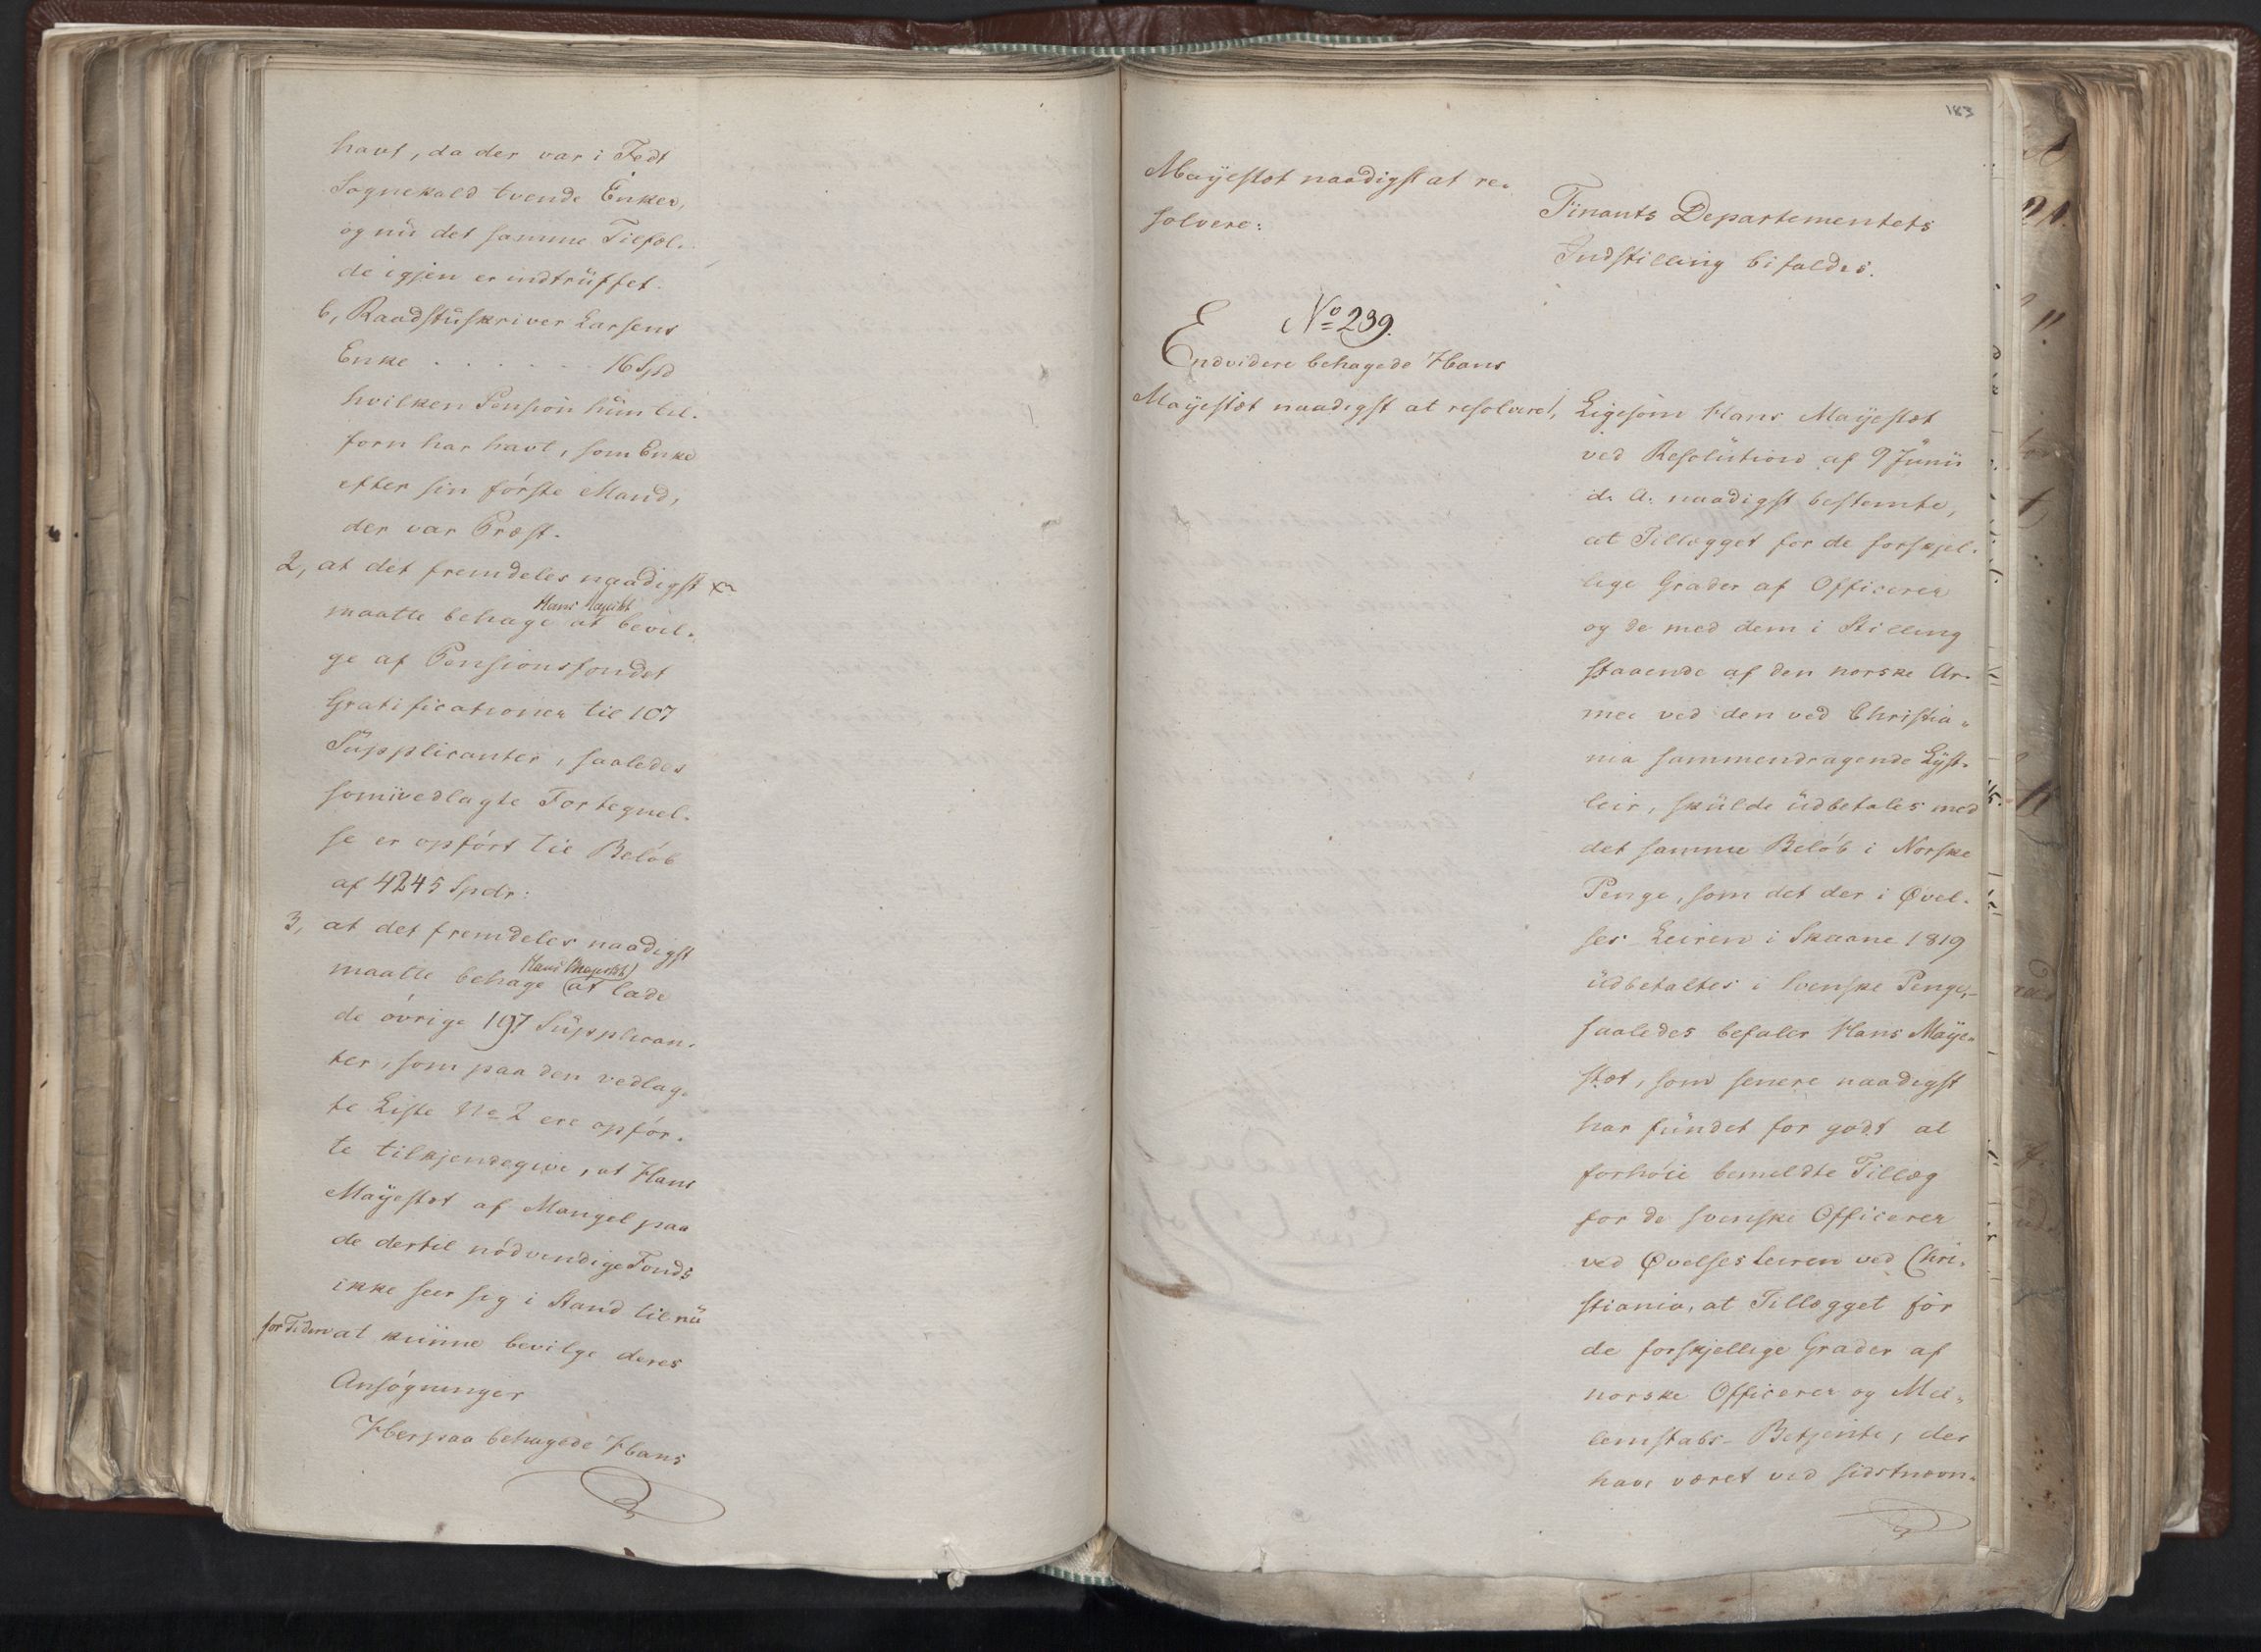 havt, da der var i Fedt
Sognekald tvende Enker,
og nü det samme Tilfæl-
de igjen er indtrüffet.
b, Raadstüskriver Larsens
Enke . . . . . . 16 Spd
hvilken Pension hün til-
forn har havt, som Enke
efter sin første Mand,
der var Præst.
2, at det fremdeles naadigst
Hans Majestæt
maatte behage at bevil-
ge af Pensionsfondet
Gratificationer til 107
Süpplicanter, saaledes
som i vedlagte Fortegnel-
se er opført til Beløb
af 4245 Spdr:
3, at det fremdeles naadigst
Hans Majestæt
maatte behage at lade
de øvrige 197 Süpplican-
ter, som paa den vedlag-
te Liste No 2 ere opfør-
te tilkjendegive, at Hans
Mayestæt af Mangel paa
de dertil nødvendige Fonds
ikke seer sig i Stand til nü
for Tiden at künne bevilge deres
Ansøgninger
Herpaa behagede Hans
183
Mayestæt naadigst at re-
solvere:
Finants Departementets
Indstilling bifaldes.
No 239.
Endvidere behagede Hans
Mayestæt naadigst at resolvere,
Ligesom Hans Mayestæt
ved Resolütion af 9 Jünii
d. A. naadigst bestemte,
at Tillægget for de forskjel-
lige Grader af Officerer
og de med dem i Stilling
staaende af den norske Ar-
mee ved den ved Christia-
nia sammendragende Lyst-
leir, skülde üdbetales med
det samme Beløb i Norske
Penge, som det der i Øvel-
ses Leiren i Skaane 1819
üdbetaltes i svenske Penge,-
saaledes befaler Hans Maye-
stæt, som senere naadigst
har fündet for godt at
forhøie bemeldte Tillæg
for de svenske Officerer
ved Øvelses Leiren ved Chri-
stiania, at Tillægget for
de forskjellige Grader af
norske Officerer og Mel-
lemstabs- Betjente, der
have været ved sidstnævn-